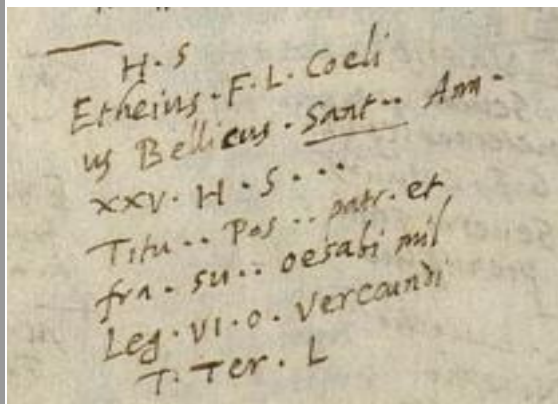 H · S
Etheius · F · L · Coeli
us Bellicus · Sant ·· Ann ·
XXV · H · S · · ·
Titu ·· Pos ·· patr · et
fra · su ·· oesabi mil
Leg · VI · o · Vercundi
T · Ter · L